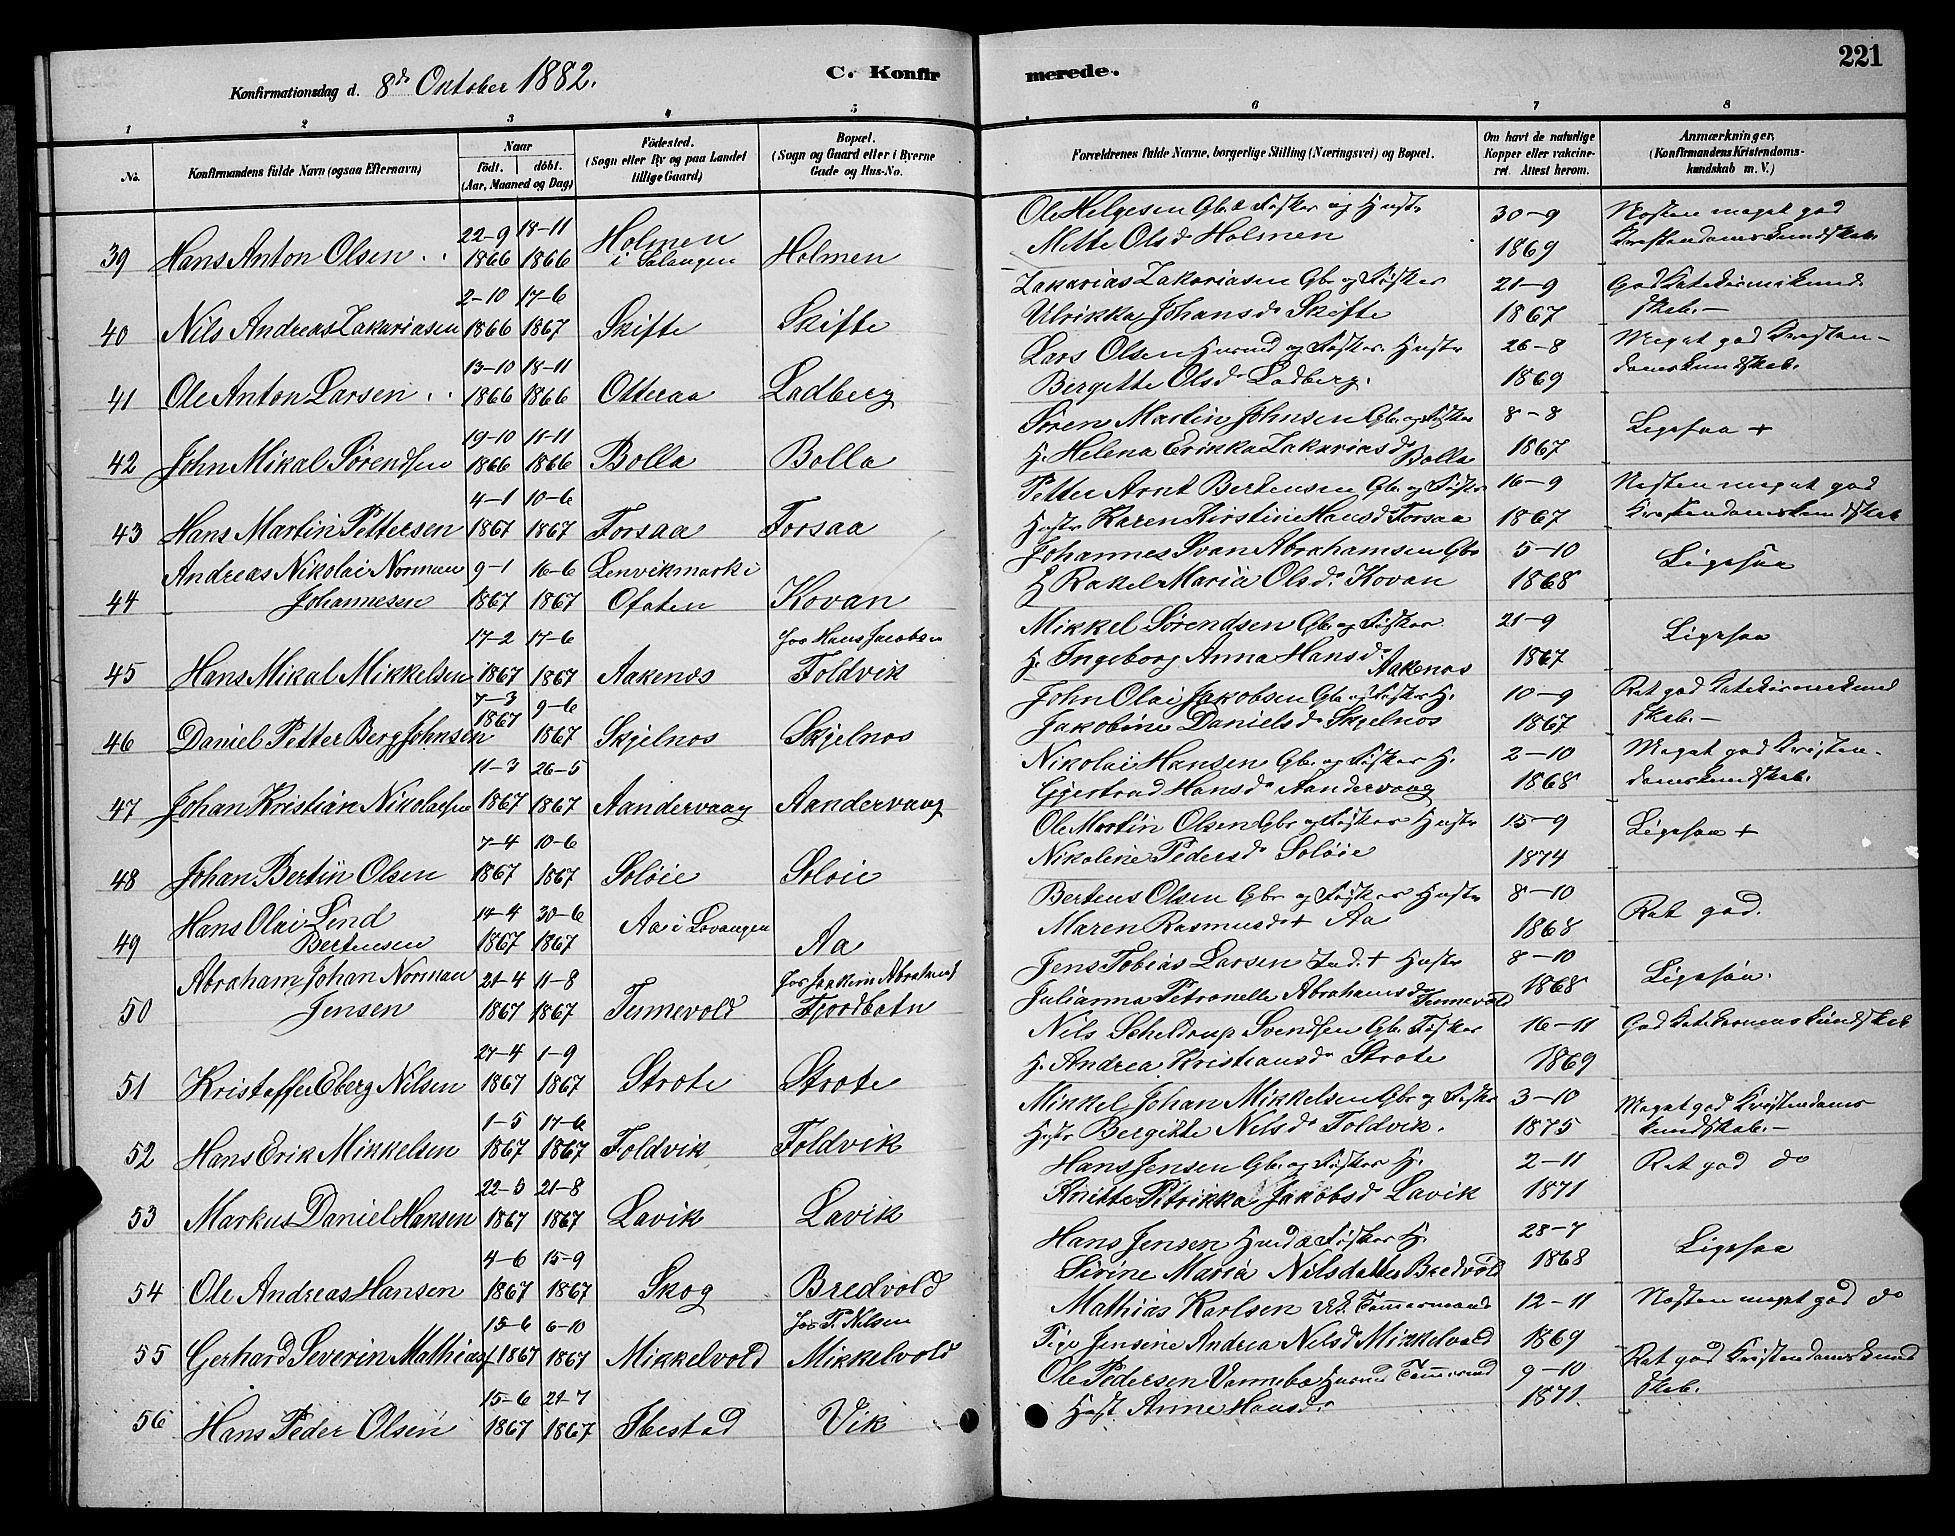 221
Konfirmationsdag d. 8de October 1882.
C. Konfir
merede.
1 2 3 4 5 6 7 8
No.
Konfirmandens fulde Navn (ogsaa Efternavn)
Naar
födt. döbt.
(Aar, Maaned og Dag)
Födested.
(Sogn eller By og paa Landet
tillige Gaard)
Bopæl.
(Sogn og Gaard eller i Byerne
Gade og Hus-No.
Forældrenes fulde Navne, borgerlige Stilling (Næringsvei) og Bopæl.
Om havt de naturlige
Kopper eller vakcine-
ret. Attest herom.
Anmærkninger,
(Konfirmandens Kristendoms-
kundskab m. V.)
22-9 18-11 Ole Helgesen Gbr. & Fisker og Hustr 30-9 Næsten meget god
39 Hans Anton Olsen 1866 1866 Holmen i Salangen Holmen Mette Olsd Holmen 1869 Kristendomskundskab
2-10 17-6 Zakarias Zakariasen Gbr og Fisker 21-9 God
40 Nils Andreas Zakariasen 1866 1867 Skifte Skifte Ulrikka Johansd Skifte 1867 skab.-
13-10 18-11 Lars Olsen Husmd og Fisker. Hustr 26-8 Meget god Kristen-
41 Ole Anton Larsen 1866 1866 Otteraa Ladberg Bergitte Olsd Ladberg. 1869 domskundskab.
19-10 11-11 Søren Martin Johnsen Gbr og Fisker 8-8 Ligesaa +
42 John Mikal Sørendsen 1866 1866 Bolla Bolla H. Helena Erikka Zakariasd Bolla 1867
4-1 10-6 Petter Arnt Bertensen Gbr og Fisker 16-9 Næsten meget god
43 Hans Martin Pettersen 1867 1867 Forsaa Forsaa Hustr Karen Kirstine Hansd Forsaa 1867 Kristendomskundskab
Andreas Nikolai Norman 9-1 16-6 Lenvikmark i Johannes Svan Abrahamsen Gbr 5-10 Ligesaa
44 Johannesen 1867 1867 Ofoten Kovan H Rakel Maria Olsd. Kovan 1868
17-2 17-6 hos Hans Jacobsen Mikkel Sørendsen Gbr og Fisker 21-9 Ligesaa
45 Hans Mikal Mikkelsen 1867 1867 Aakenæs Foldvik H. Ingeborg Anna Hansd. Aakenæs 1867
7-3 9-6 John Olai Jakobsen Gbr og Fisker H. 10-9 Ret god
46 Daniel Petter Berg Johnsen 1867 1867 Skjelnæs Skjelnæs Jakobine Danielsd Skjelnæs 1867 skab.-
11-3 26-5 Nikolai Hansen Gbr og Fisker H. 2-10 Meget god Kristen-
47 Johan Kristian Nikolaisen 1867 1867 Aandervaag Aandervaag Gjertrud Hansd. Aandervaag 1868 domskundskab.
7-4 10-6 Ole Martin Olsen Gbr og Fisker Hustr 15-9 Ligesaa +
48 Johan Bertin Olsen 1867 1867 Soløie Soløie Nikoline Pedersd. Soløie 1874
Hans Olai Lind 14-4 30-6 Aa i Lavangen Berteus Olsen Gbr og Fisker Hustr 8-10 Ret god.
49 Berteusen 1867 1867 Aa Maren Rasmusd + Aa 1868
Abraham Johan Norman 21-4 11-8 hos Joakim Abrahamsd Jens Tobias Larsen Ind. + Hustr 8-10 Ligesaa.
50 Jensen 1867 1867 Tennevold Fjordbotn Julianna Petronelle Abrahamsd Tennevold 1868
27-4 1-9 Nils Scheldrup Svendsen Gbr. Fisker 16-11 God
51 Kristoffer Eberg Nilsen 1867 1867 Strote Strote H. Andrea Kristiansd. Strote 1869
1-5 17-6 Mikkel Johan Mikkelsen Gbr og Fisker 3-10 Meget god Kristendoms
52 Hans Erik Mikkelsen 1867 1867 Foldvik Foldvik Hustr Bergitte Nilsd. Foldvik. 1875 kundskab.-
22-5 21-8 Hans Jensen Gbr. og Fisker H. 2-11 Ret god do
53 Markus Daniel Hansen 1867 1867 Lavik Lavik Anitte Petrikka Jakobsd Lavik 1871
4-6 15-9 Hans Jensen Husmd & Fisker H. 28-7 Ligesaa
54 Ole Andreas Hansen 1867 1867 Skog Bredvold Sirine Maria Nilsdatter Bredvold 1868
15-6 6-10 hos P. Nilsen Mathias Karlsen Tømmermand 12-11 Næsten meget god do
55 Gerhard Severin Mathiasf 1867 1867 Mikkelvold Mikkelvold Pige Jensine Andrea Nilsd Mikkelvold 1869
15-6 21-7 Ole Pedersen Vannebo Husmd Tømmermd 9-10 Ret god Kristendomskund
56 Hans Peder Olsen 1867 1867 Ibestad Vik Hust Anne Hansd. 1871. skab.